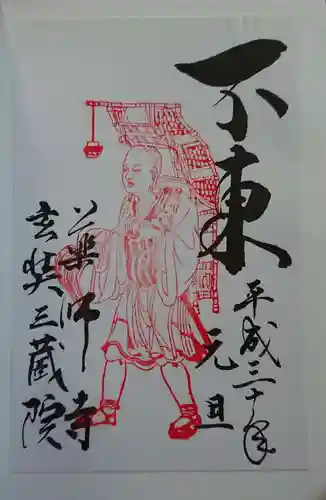 不東
平成三十年
元旦
薬師寺
玄奘三蔵院